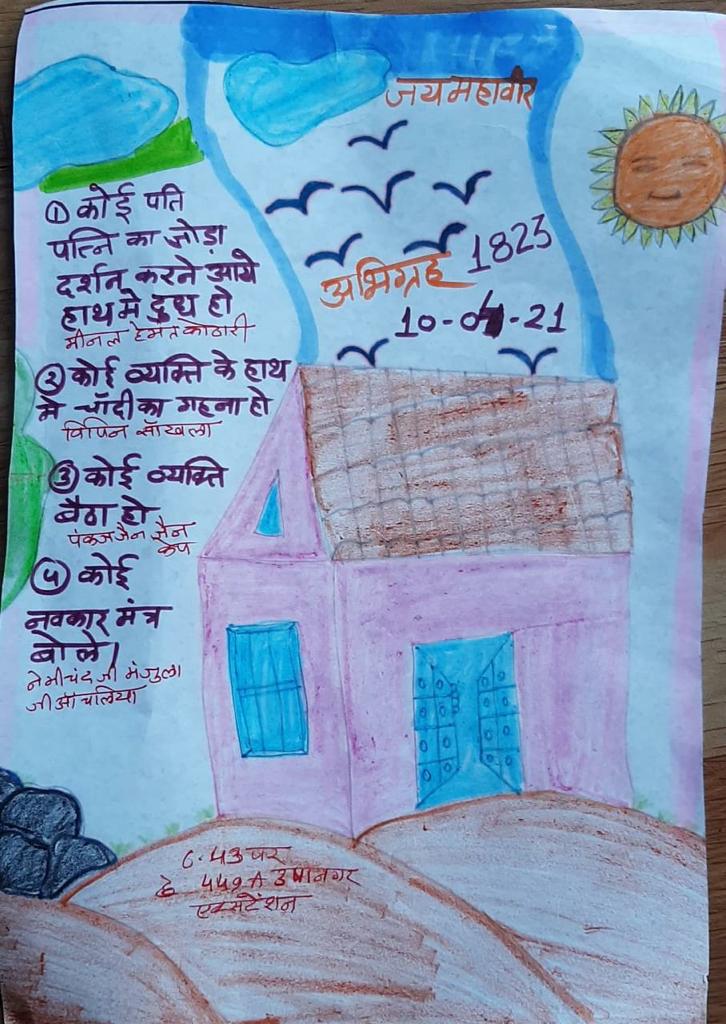 जय महावीर
अभिग्रह 1823
10-04-21
① कोई पति
पत्नि का जोड़ा
दर्शन करने आये
हाथ मे दुध हो
मीनल हेमंत कोठारी
② कोई व्यक्ति के हाथ
मे चाँदी का गहना हो
विपिन साँखला
③ कोई व्यक्ति
बैठा हो
पंकज जैन जैन
④ कोई
नवकार मंत्र
बोले।
नेमीचंद जी मंजुला
जी आँचलिया
6.43 पर
449 A उषा नगर
एक्सटेंशन